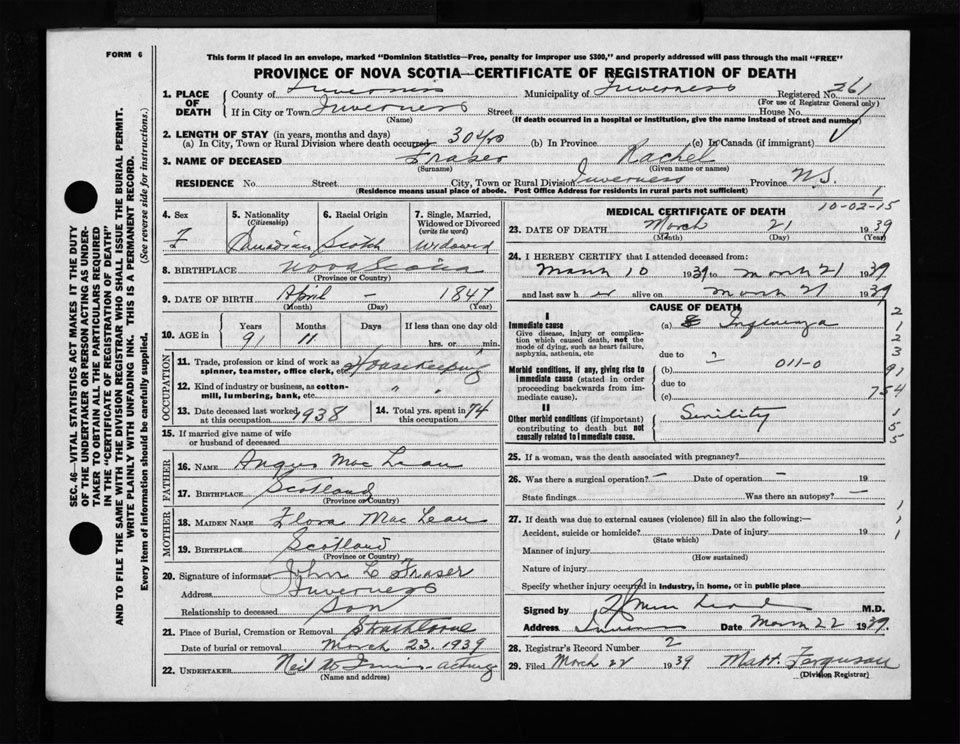 FORM 6
This form if placed in an envelope, marked "Dominion Statistics—Free, penalty for improper use $300," and properly addressed will pass through the mail "FREE"
PROVINCE OF NOVA SCOTIA—CERTIFICATE OF REGISTRATION OF DEATH
1. PLACE OF DEATH County of Inverness Municipality of Inverness Registered No. 261
(For use of Registrar General only)
If in City or Town Inverness Street House No.
(Name) (If death occurred in a hospital or institution, give the name instead of street and number)
2. LENGTH OF STAY (in years, months and days)
(a) In City, Town or Rural Division where death occurred 30 yrs (b) In Province (c) In Canada (if immigrant)
3. NAME OF DECEASED Fraser Rachel
(Surname) (Given name or names)
RESIDENCE No. Street City, Town or Rural Division Inverness Province N.S.
(Residence means usual place of abode. Post Office Address for residents in rural parts not sufficient)
1
4. Sex 5. Nationality (Citizenship) 6. Racial Origin 7. Single, Married, Widowed or Divorced (write the word)
F Canadian Scotch Widowed
8. BIRTHPLACE Nova Scotia
(Province or Country)
9. DATE OF BIRTH April — 1847
(Month) (Day) (Year)
10. AGE in Years Months Days If less than one day old
91 11 hrs. or min.
OCCUPATION
11. Trade, profession or kind of work as spinner, teamster, office clerk, etc. Housekeeping
12. Kind of industry or business, as cotton-mill, lumbering, bank, etc. " "
13. Date deceased last worked at this occupation 1938 14. Total yrs. spent in this occupation 74
15. If married give name of wife or husband of deceased
FATHER
16. NAME Angus Mac Lean
17. BIRTHPLACE Scotland
(Province or Country)
MOTHER
18. MAIDEN NAME Flora Mac Lean
19. BIRTHPLACE Scotland
(Province or Country)
20. Signature of informant John L Fraser
Address Inverness
Relationship to deceased Son
21. Place of Burial, Cremation or Removal Strathlorne
Date of burial or removal March 23. 1939
22. UNDERTAKER Neil acting
(Name and address)
10-02-15
MEDICAL CERTIFICATE OF DEATH
23. DATE OF DEATH March 21 1939
(Month) (Day) (Year)
24. I HEREBY CERTIFY that I attended deceased from:
March 10 1939 to March 21 1939
and last saw her alive on March 21 1939
CAUSE OF DEATH
I
Immediate cause (a) Influenza
Give disease, injury or complication which caused death, not the mode of dying, such as heart failure, asphyxia, asthenia, etc
due to
Morbid conditions, if any, giving rise to immediate cause (stated in order proceeding backwards from immediate cause). (b) 011-0
due to
(c)
II
Other morbid conditions (if important) contributing to death but not causally related to immediate cause. Senility
2
1
2
3
91
754
1
5
5
25. If a woman, was the death associated with pregnancy?
26. Was there a surgical operation? — Date of operation — 19
State findings Was there an autopsy? —
27. If death was due to external causes (violence) fill in also the following:—
Accident, suicide or homicide? Date of injury 19
(State which)
Manner of injury
(How sustained)
Nature of injury
Specify whether injury occurred in industry, in home, or in public place
1
1
1
Signed by M.D.
Address Date March 22 1939.
28. Registrar's Record Number 2
29. Filed March 22 1939 Matt. Ferguson
(Division Registrar)
SEC. 46—VITAL STATISTICS ACT MAKES IT THE DUTY
OF THE UNDERTAKER OR PERSON ACTING AS UNDER-
TAKER TO OBTAIN ALL THE PARTICULARS REQUIRED
IN THE "CERTIFICATE OF REGISTRATION OF DEATH"
AND TO FILE THE SAME WITH THE DIVISION REGISTRAR WHO SHALL ISSUE THE BURIAL PERMIT.
WRITE PLAINLY WITH UNFADING INK. THIS IS A PERMANENT RECORD.
Every item of information should be carefully supplied. (See reverse side for instructions.)